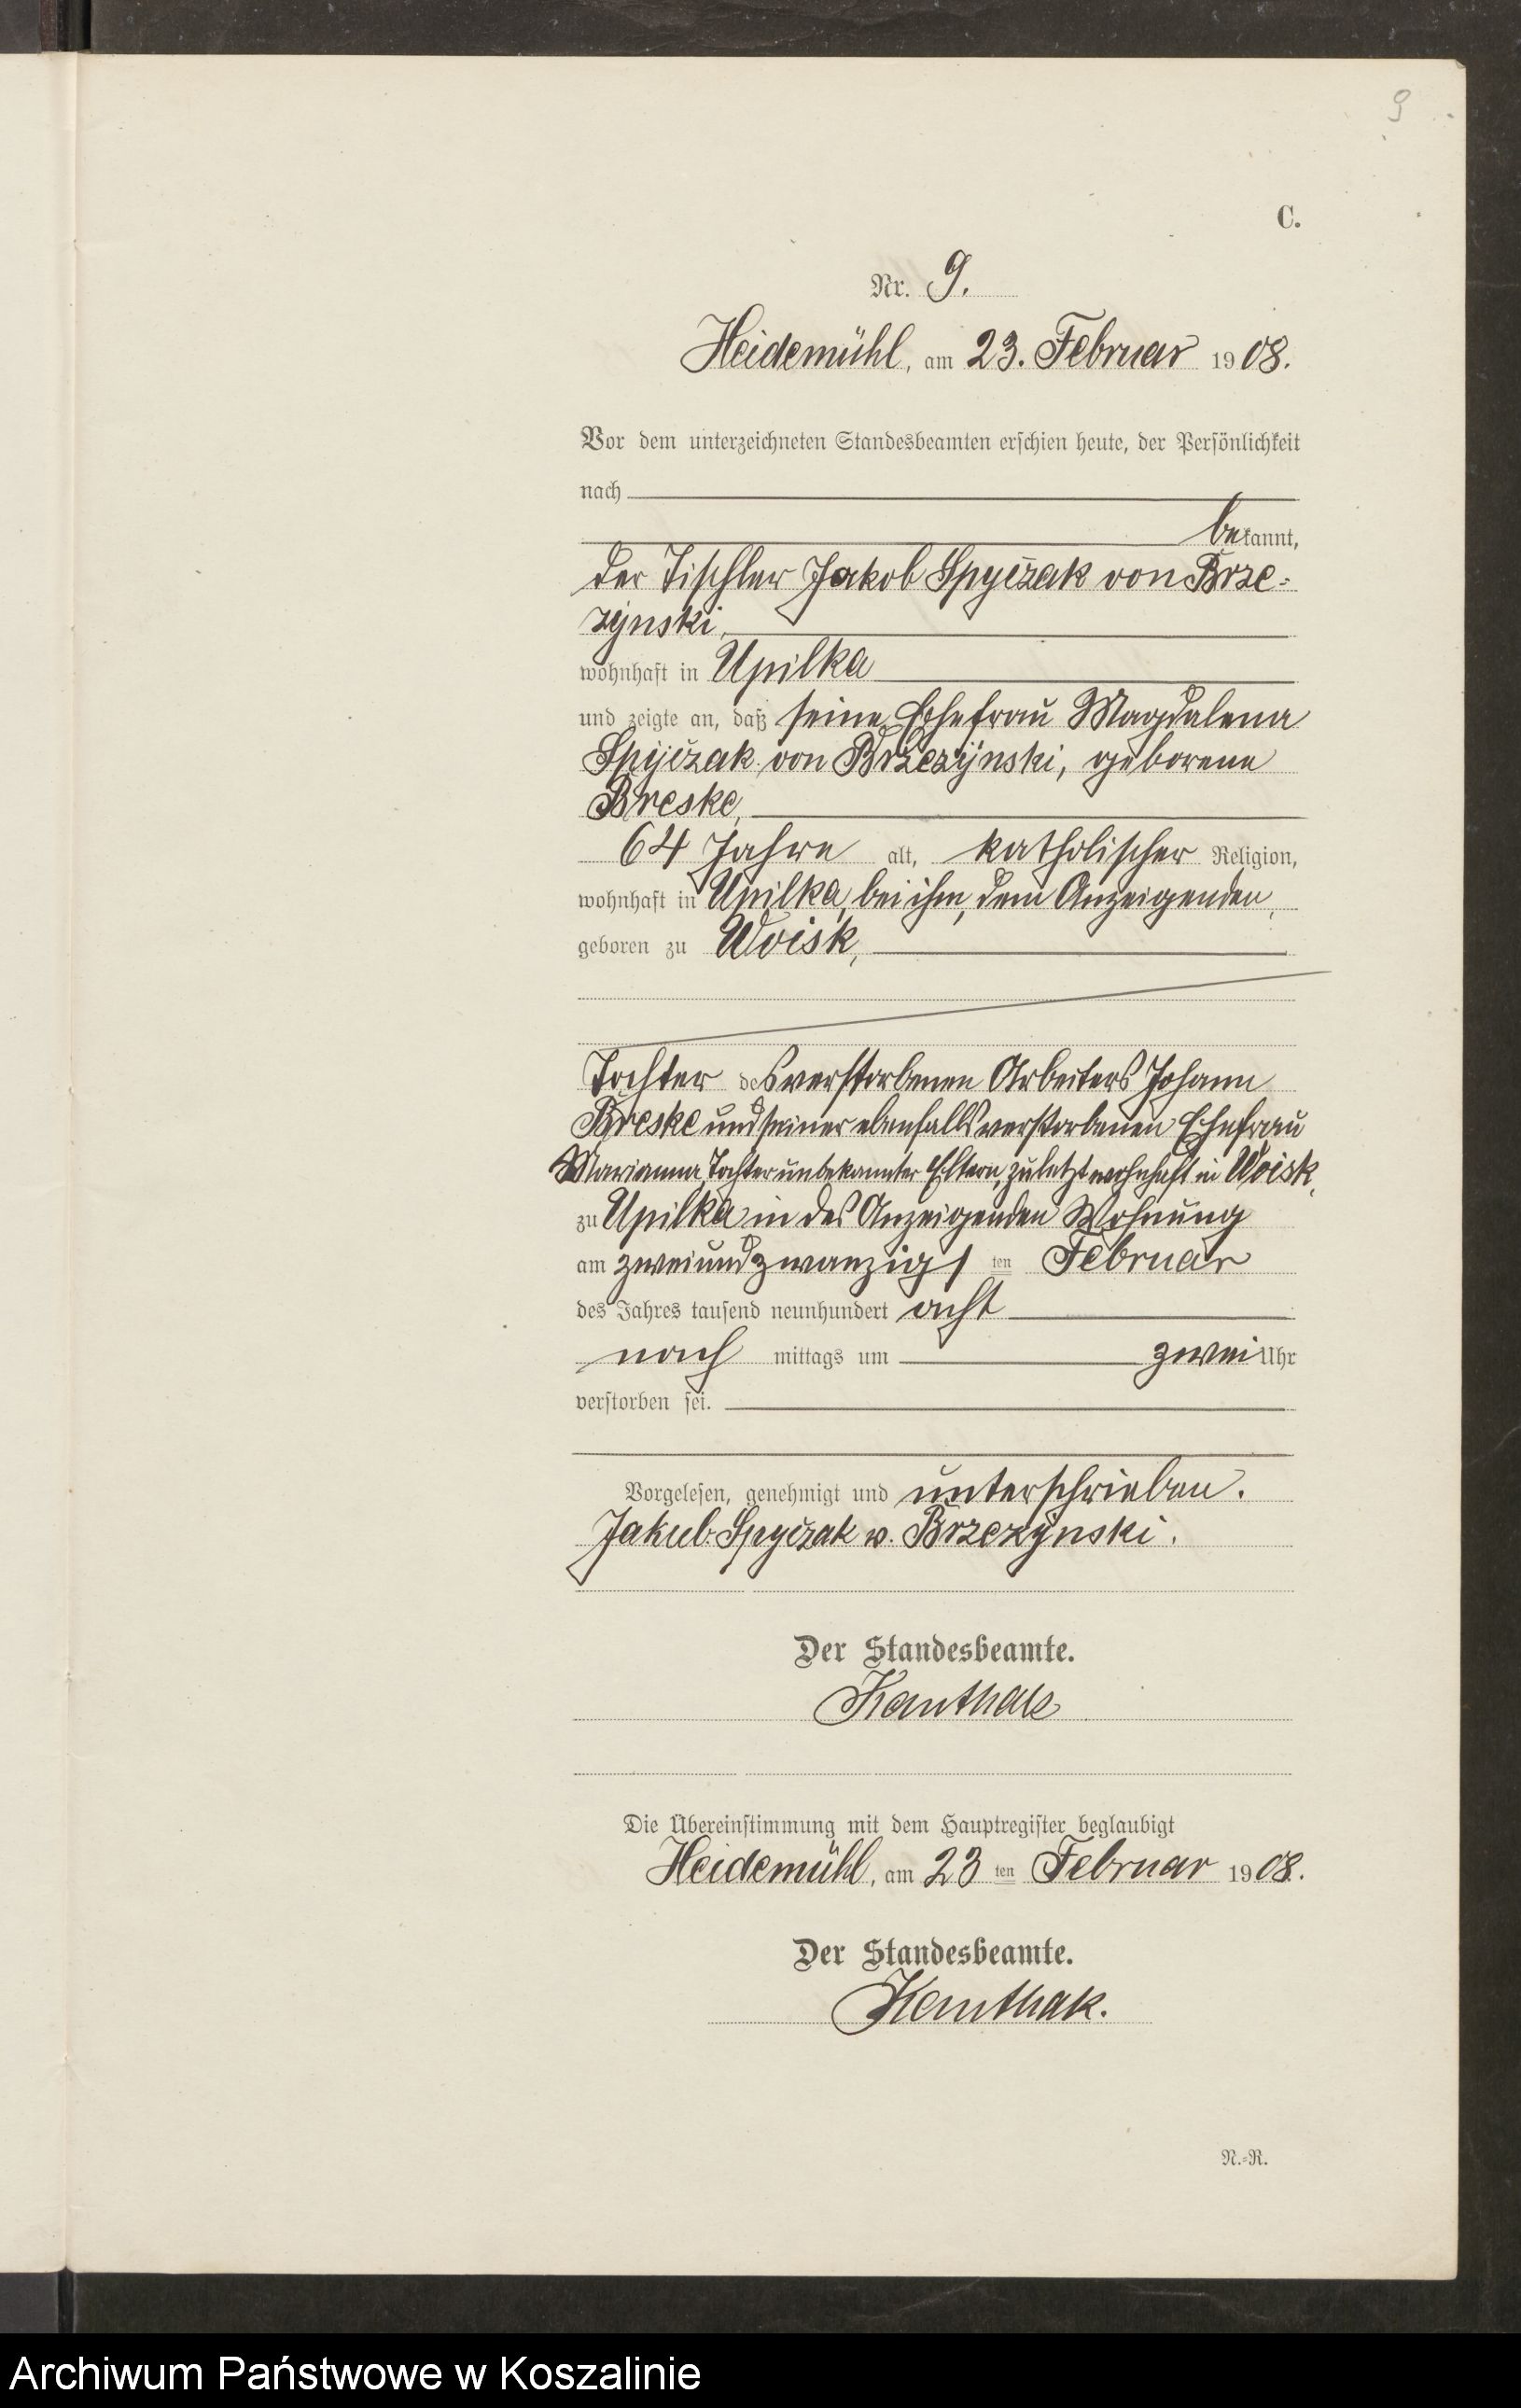 9
C.
Nr. 9.
Heidemühl, am 23. Februar 1908.
Vor dem unterzeichneten Standesbeamten erschien heute, der Persönlichkeit
nach
bekannt,
der Tischler Jakob Spyczak von Brze-
zynski,
wohnhaft in Upilka
und zeigte an, daß seine Ehefrau Magdalena
Spyczak von Brzezynski, geborene
Breske,
64 Jahre alt, katholischer Religion,
wohnhaft in Upilka, bei ihm, dem Anzeigenden,
geboren zu Woisk,
Tochter des verstorbenen Arbeiters Johann
Breske und seiner ebenfalls verstorbenen Ehefrau
Marianna, Tochter unbekannter Eltern, zuletzt wohnhaft in Woisk,
zu Upilka in des Anzeigenden Wohnung
am zweiundzwanzigsten Februar
des Jahres tausend neunhundert acht
nachmittags um zwei Uhr
verstorben sei.
Vorgelesen, genehmigt und unterschrieben.
Jakub Spyczak v. Brzezynski.
Der Standesbeamte.
Kanthak
Die Übereinstimmung mit dem Hauptregister beglaubigt
Heidemühl, am 23ten Februar 1908.
Der Standesbeamte.
Kanthak.
N.-R.
Archiwum Państwowe w Koszalinie